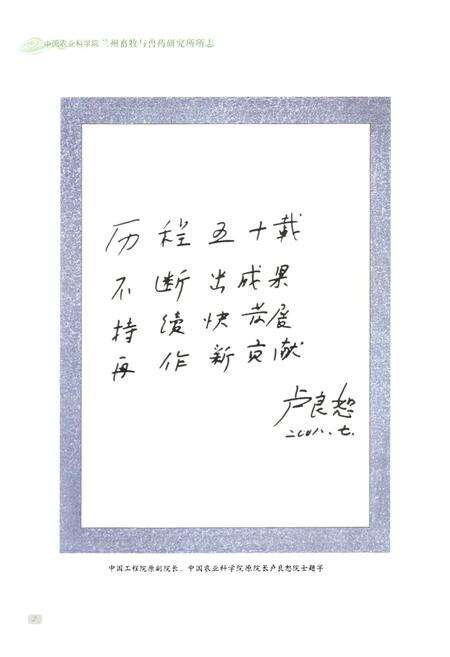 中国农业科学院 兰州畜牧与兽药研究所所志
历程五十载
不断出成果
持续快发展
再作新贡献
卢良恕
二〇〇八.七.
中国工程院原副院长、中国农业科学院原院长卢良恕院士题字
2